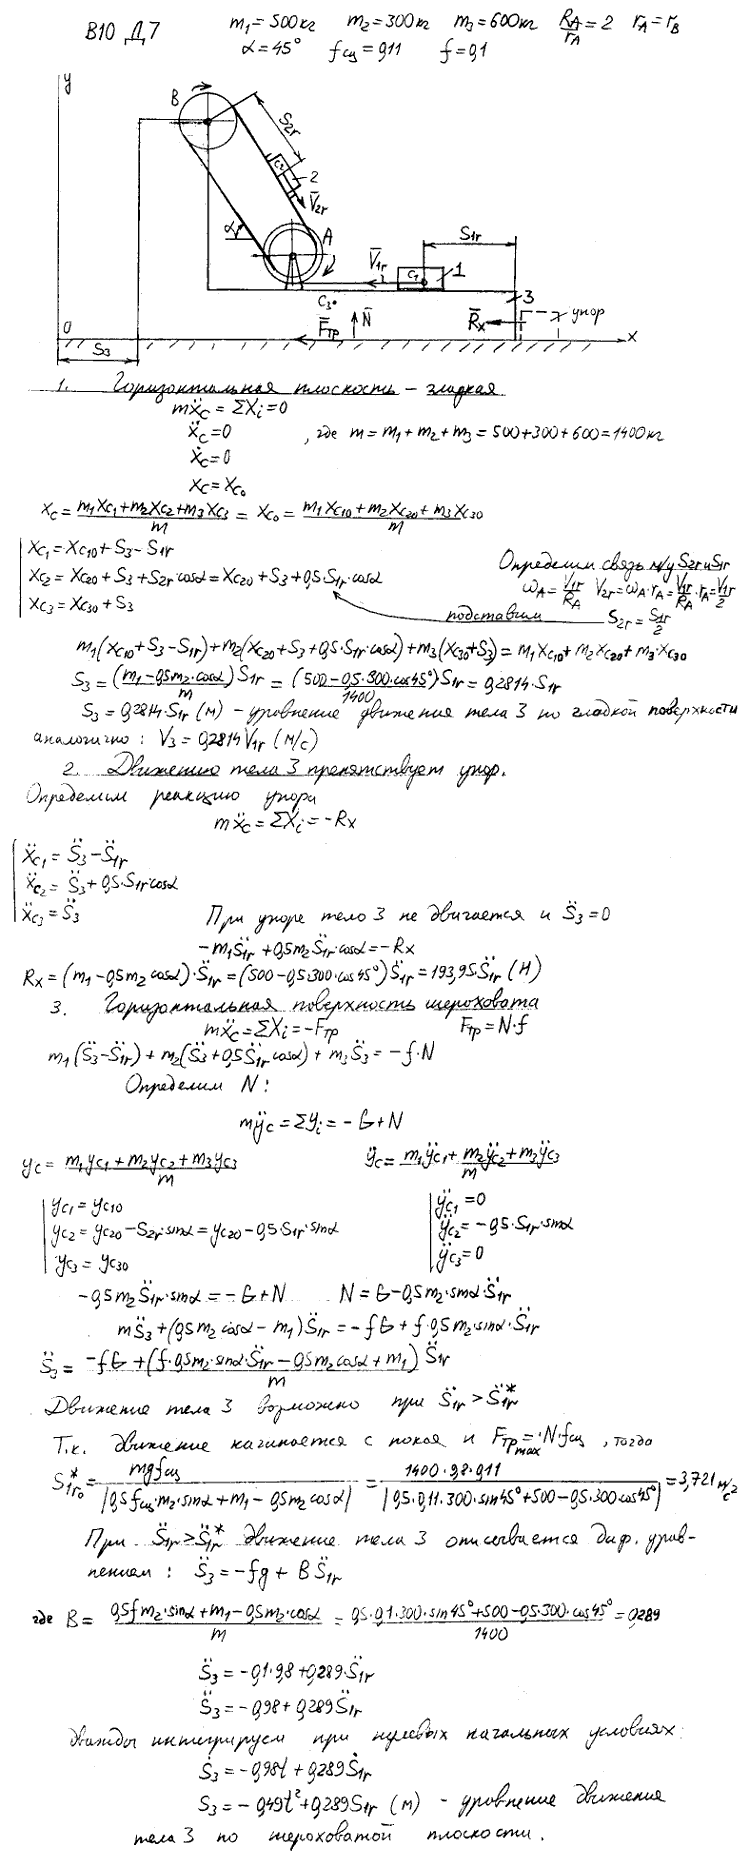 В10 Д7 m₁=500кг m₂=300кг m₃=600кг R_A/r_A=2 r_A=r_B
α=45° f_сц=0,11 f=0,1
y
B
S₂r
C₂
2
V̄₂r
A
α
S₁r
V̄₁r
C₁
1
C₃
3
N̄
F̄тр
R̄x
упор
O
x
S₃
1. Горизонтальная плоскость – гладкая
mẍc=ΣXi=0
ẍc=0 , где m=m₁+m₂+m₃=500+300+600=1400кг
ẋc=0
xc=xc₀
xc=(m₁xc₁+m₂xc₂+m₃xc₃)/m = xc₀=(m₁xc₁₀+m₂xc₂₀+m₃xc₃₀)/m
xc₁=xc₁₀+S₃–S₁r
xc₂=xc₂₀+S₃+S₂r·cosα=xc₂₀+S₃+0,5·S₁r·cosα
xc₃=xc₃₀+S₃
Определим связь м/у S₂r и S₁r
ω_A=V₁r/R_A V₂r=ω_A·r_A=V₁r/R_A·r_A=V₁r/2
подставим S₂r=S₁r/2
m₁(xc₁₀+S₃–S₁r)+m₂(xc₂₀+S₃+0,5·S₁r·cosα)+m₃(xc₃₀+S₃)=m₁xc₁₀+m₂xc₂₀+m₃·xc₃₀
S₃=(m₁–0,5m₂·cosα)/m S₁r=(500–0,5·300·cos45°)/1400 S₁r=0,2814·S₁r
S₃=0,2814·S₁r (м) – уровнение движения тела 3 по гладкой поверхности
аналогично: V₃=0,2814V₁r (м/с)
2. Движению тела 3 препятствует упор.
Определим реакцию упора
mẍc=ΣXi=–Rx
ẍc₁=S̈₃–S̈₁r
ẍc₂=S̈₃+0,5·S̈₁r·cosα
ẍc₃=S̈₃
При упоре тело 3 не двигается и S̈₃=0
–m₁S̈₁r+0,5m₂S̈₁r·cosα=–Rx
Rx=(m₁–0,5m₂cosα)·S̈₁r=(500–0,5·300·cos45°)S̈₁r=193,95S̈₁r (Н)
3. Горизонтальная поверхность шероховата
mẍc=ΣXi=–Fтр Fтр=N·f
m₁(S̈₃–S̈₁r)+m₂(S̈₃+0,5S̈₁r cosα)+m₃S̈₃=–f·N
Определим N:
mÿc=Σyi=–G+N
yc=(m₁yc₁+m₂yc₂+m₃yc₃)/m ÿc=(m₁ÿc₁+m₂ÿc₂+m₃ÿc₃)/m
yc₁=yc₁₀
yc₂=yc₂₀–S₂r·sinα=yc₂₀–0,5·S₁r·sinα
yc₃=yc₃₀
ÿc₁=0
ÿc₂=–0,5·S̈₁r·sinα
ÿc₃=0
–0,5m₂S̈₁r·sinα=–G+N N=G–0,5m₂·sinα·S̈₁r
mS̈₃+(0,5m₂cosα–m₁)S̈₁r=–fG+f·0,5m₂·sinα·S̈₁r
S̈₃=(–fG+(f·0,5m₂·sinα·S̈₁r–0,5m₂cosα+m₁)S̈₁r)/m
Движение тела 3 возможно при S̈₁r>S̈₁r*
Т.к. движение начинается с покоя и Fтр max=N·fсц, тогда
S̈₁r₀*=mgfсц/|0,5fсц·m₂·sinα+m₁–0,5m₂cosα|=1400·9,8·0,11/|0,5·0,11·300·sin45°+500–0,5·300·cos45°|=3,721м/с²
При S̈₁r>S̈₁r* движение тела 3 описывается диф. урав-
нением: S̈₃=–fg+BS̈₁r
где B=(0,5fm₂·sinα+m₁–0,5m₂·cosα)/m=(0,5·0,1·300·sin45°+500–0,5·300·cos45°)/1400=0,289
S̈₃=–0,1·9,8+0,289·S̈₁r
S̈₃=–0,98+0,289S̈₁r
дважды интегрируем при нулевых начальных условиях:
Ṡ₃=–0,98t+0,289Ṡ₁r
S₃=–0,49t²+0,289S₁r (м) – уровнение движения
тела 3 по шероховатой плоскости.